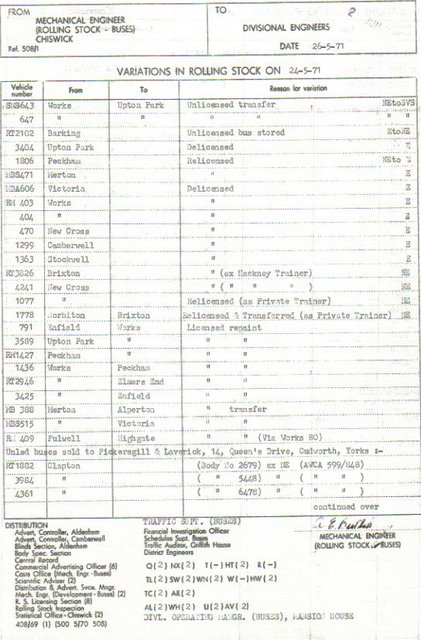 FROM
MECHANICAL ENGINEER
(ROLLING STOCK - BUSES)
CHISWICK
Ref. 508/1
TO
2
DIVISIONAL ENGINEERS
DATE 26-5-71
VARIATIONS IN ROLLING STOCK ON 24-5-71
Vehicle number From To Reason for variation
SMS643 Works Upton Park Unlicensed transfer NEtoSVS
647 " " " " " "
RT2102 Barking Unlicensed bus stored EtoNE
3404 Upton Park Delicensed E
1806 Peckham Relicensed NEto E
MBS471 Merton " E
MBA606 Victoria Delicensed E
RM 403 Works " E
404 " " E
470 New Cross " E
1299 Camberwell " E
1363 Stockwell " E
RT3826 Brixton " (ex Hackney Trainer) NE
4241 New Cross " ( " " " ) NE
1077 " Relicensed (as Private Trainer) NE
1778 Norbiton Brixton Relicensed & Transferred (as Private Trainer) NE
791 Enfield Works Licensed repaint
3589 Upton Park " " "
RM1427 Peckham " " "
1436 Works Peckham " "
RT2946 " Elmers End " "
3425 " Enfield " "
MB 388 Merton Alperton " transfer
MBS515 " Victoria " "
RM 409 Fulwell Highgate " " (Via Works HO)
Unlsd buses sold to Pickersgill & Laverick, 14, Queen's Drive, Cudworth, Yorks :-
RT1882 Clapton (Body No 2679) ex NE (AWCA 599/848)
3984 " ( " 5448) " ( " " )
4361 " ( " 6478) " ( " " )
continued over
DISTRIBUTION
Advert. Controller, Aldenham
Advert. Controller, Camberwell
Blinds Section, Aldenham
Body Spec. Section
Central Record
Commercial Advertising Officer (6)
Costs Office (Mech. Engr.-Buses)
Scientific Adviser (2)
Distribution & Advert. Svce. Mngr.
Mech. Engr. (Development - Buses) (2)
R. S. Licensing Section (8)
Rolling Stock Inspection
Statistical Office - Chiswick (2)
408/69 (1) (500 5/70 508)
TRAFFIC SUPT. (BUSES)
Financial Investigation Officer
Schedules Supt. Buses
Traffic Auditor, Griffith House
District Engineers
Q(2) NX(2) T(-) HT(2) R(-)
TL(2) SW(2) WN(2) W(-) HW(2)
TC(2) AR(2)
AL(2) WH(2) U(2) AV(2)
DIVL. OPERATING MANGR. (BUSES), MANSION HOUSE
MECHANICAL ENGINEER
(ROLLING STOCK - BUSES)